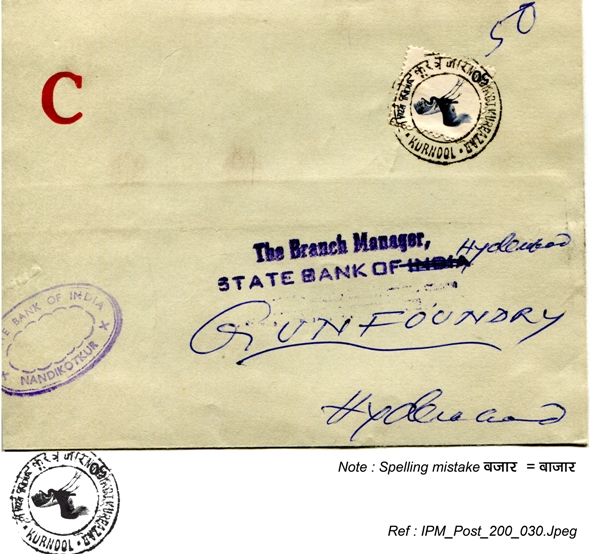 50
C
KURNOOL
The Branch Manager,
STATE BANK OF INDIA Hyderabad
GUNFOUNDRY
Hyderabad
STATE BANK OF INDIA
NANDIKOTKUR
Note : Spelling mistake बजार = वाजार
KURNOOL
Ref : IPM_Post_200_030.Jpeg